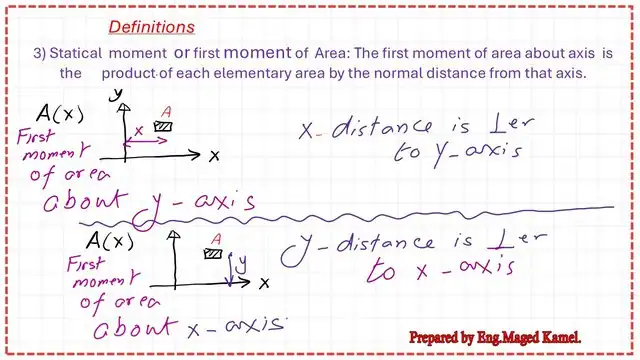 Definitions
3) Statical moment or first moment of Area: The first moment of area about axis is
the product of each elementary area by the normal distance from that axis.
y
A(x)
A
First
moment
of area
x
x
about y-axis
x-distance is ⊥er
to y-axis
A(x)
A
First
moment
of area
y
x
about x-axis
y-distance is ⊥er
to x-axis
Prepared by Eng.Maged Kamel.